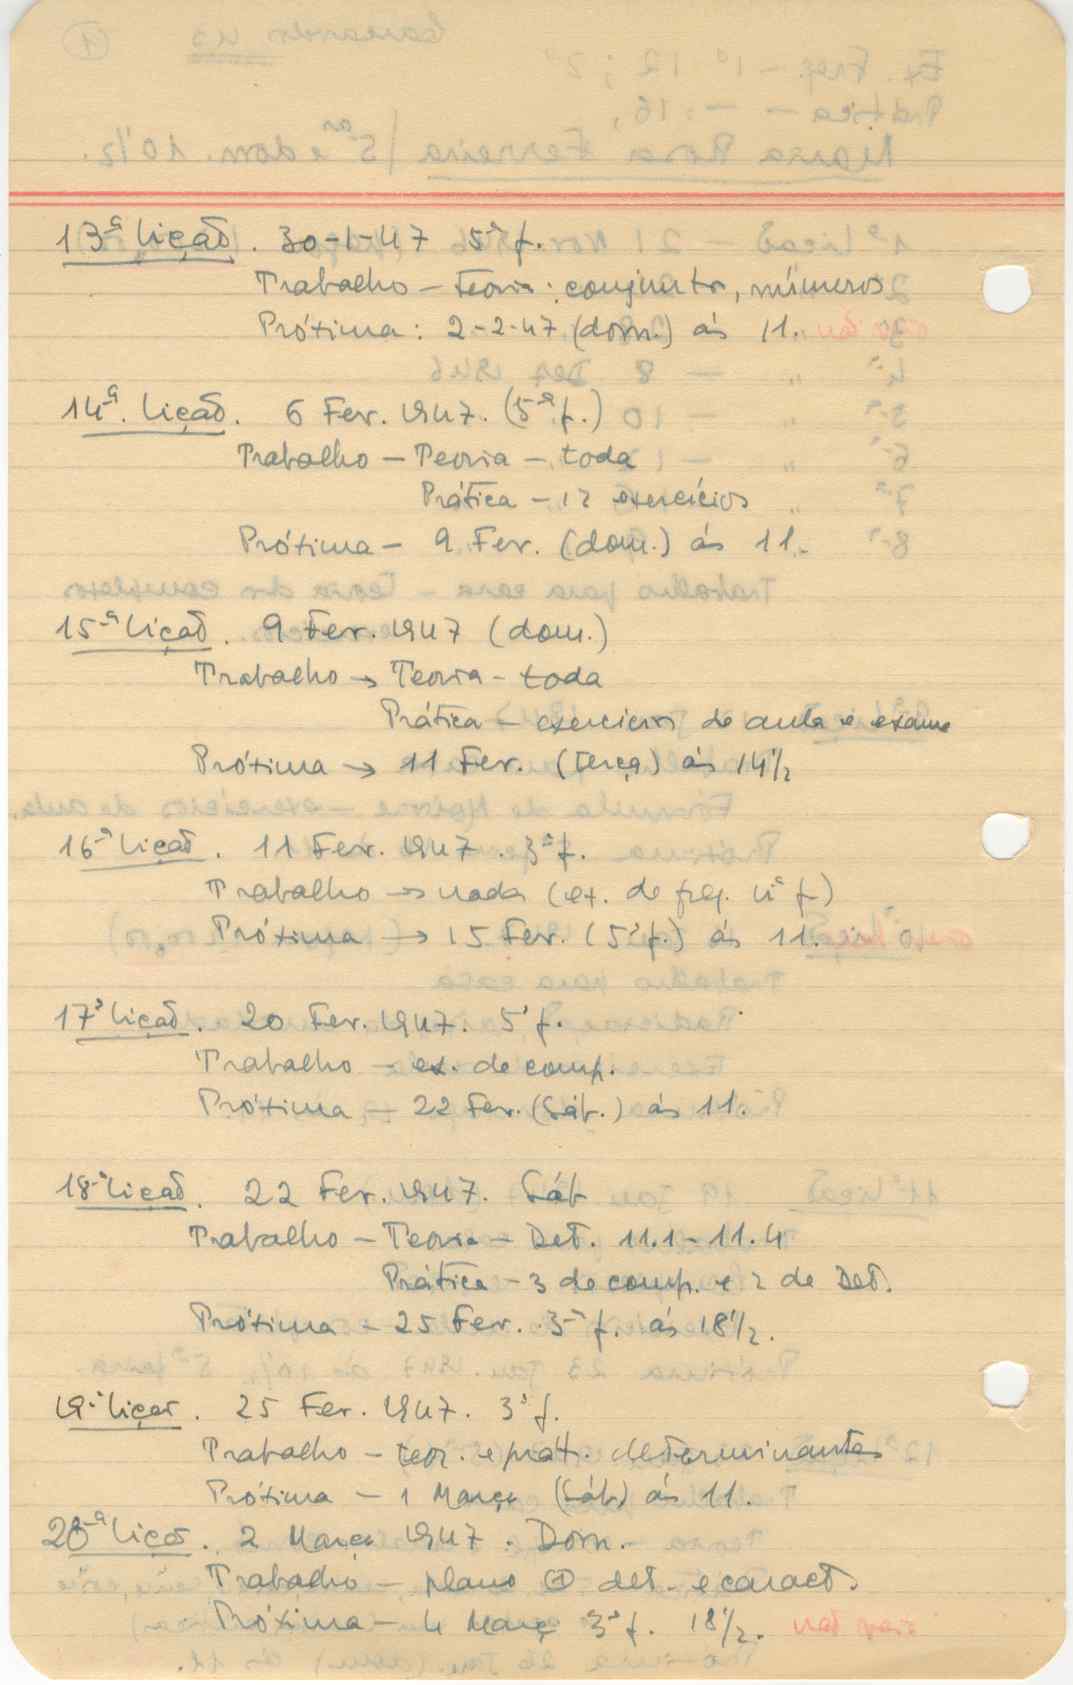 13ª lição. 30-1-47 5ª f.
Trabalho – Teoria: conjuntos, números
Próxima: 2-2-47 (dom.) às 11.
14ª. lição. 6 Fev. 1947. (5ª f.)
Trabalho – Teoria – toda
Prática – 12 exercícios
Próxima – 9 Fev. (dom.) às 11.
15ª lição. 9 Fev. 1947 (dom.)
Trabalho → Teoria – toda
Prática – exercícios de aula e exame
Próxima → 11 Fev. (terça) às 14½
16ª lição. 11 Fev. 1947. 3ª f.
Trabalho → nada (ex. de freq. 4ª f)
Próxima → 15 Fev. (5ª f.) às 11.
17ª lição. 20 Fev. 1947. 5ª f.
Trabalho – ex. de comp.
Próxima – 22 Fev. (Sáb.) às 11.
18ª lição. 22 Fev. 1947. Sáb
Trabalho – Teoria – Det. 11.1 – 11.4
Prática – 3 de comp. e 2 de Det.
Próxima – 25 Fev. 3ª f. às 18½.
19ª lição. 25 Fev. 1947. 3ª f.
Trabalho – teor. e prát. determinantes
Próxima – 1 Março (Sáb) às 11.
20ª lição. 2 Março 1947. Dom.
Trabalho – plano ① det. e caract.
Próxima – 4 Março 3ª f. 18½.